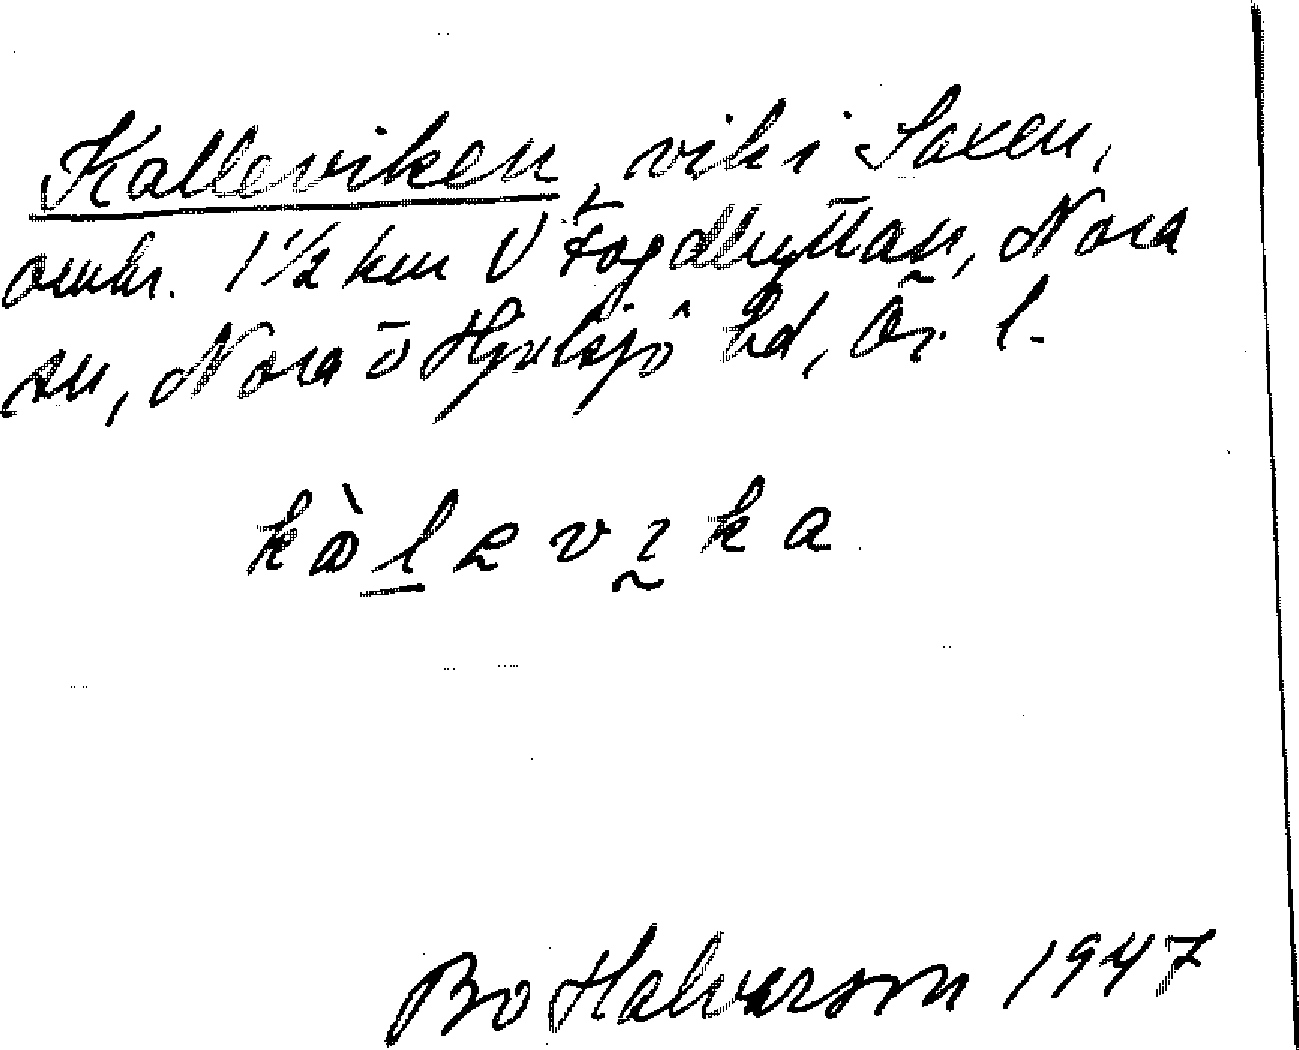 Kalleviken, vik i Saxen,
omkr. 1 ½ km V Fogdhyttan, Nora
sn, Nora o Hjulsjö hd, Ör. l.
kàlevika
Bo Halvarson 1947